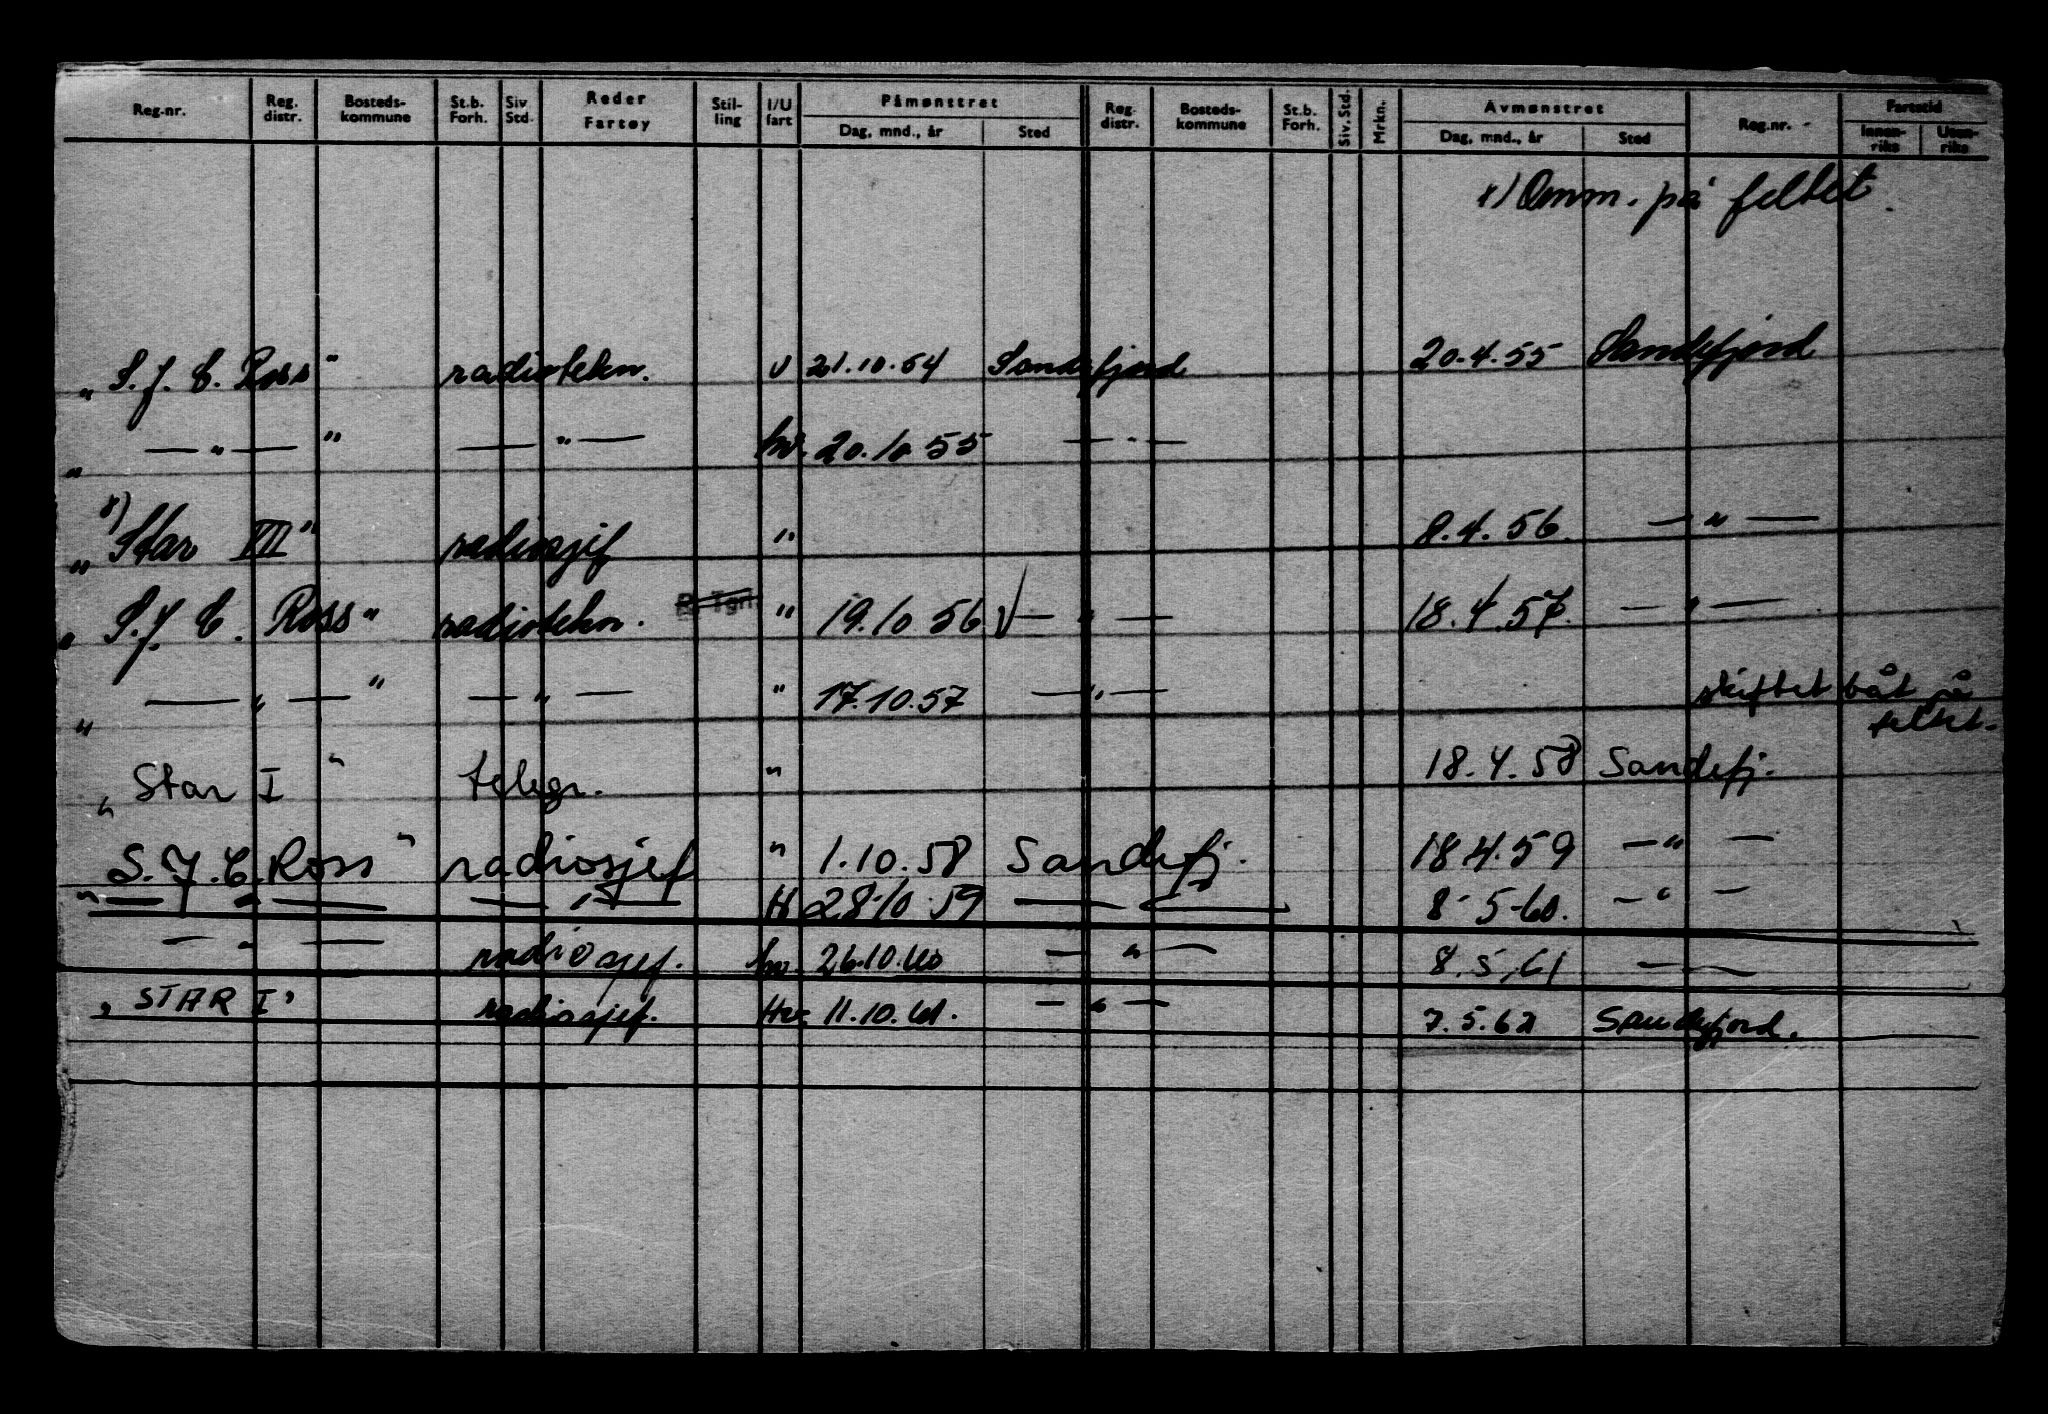 Reg.nr. Reg. distr. Bosteds-kommune St.b. Forh. Siv. Std. Reder Fartøy Stil-ling I/U fart Påmønstret Dag, mnd., år Sted Reg. distr. Bosteds-kommune St.b. Forh. Siv. Std. Mrkn. Avmønstret Dag, mnd., år Sted Reg.nr. Fartstid Innen-riks Uten-riks
x) Omm. på feltet
" S. J. C. Ross " radiotekn. U 21.10.54 Sandefjord 20.4.55 Sandefjord
" — " — " — " — hv. 20.10.55 — " —
x)
" Star VII " radiosjef " 8.4.56. — " —
" S. J. C. Ross " radiotekn. R. Tgr. " 19.10.56 V — " — 18.4.57. — " —
" — " — " — " — " 17.10.57 — " — skiftet båt på
feltet.
" Star I " telegr. " 18.4.58 Sandefj.
" S. J. C. Ross " radiosjef " 1.10.58 Sandefj. 18.4.59 — " —
— " — — " — H 28.10.59 — " — 8-5-60. — " —
— " — radiosjef. hv. 26.10.60 — " — 8.5.61 — " —
" STAR I " radiosjef. Hv. 11.10.61. — " — 7.5.62 Sandefjord.